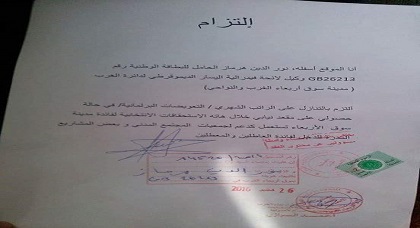 إلتزام
انا الموقع أسفله، نور الدين هرماز الحامل للبطاقة الوطنية رقم
GB26213 وكيل لائحة فيدرالية اليسار الديموقرطي لدائرة الغرب
( مدينة سوق أربعاء الغرب والنواحي)
ألتزم بالتنازل على الراتب الشهري / التعويضات البرلمانية/ في حالة
حصولي على مقعد نيابي خلال هاته الاستحقاقات الانتخابية لفائدة مدينة
سوق الأربعاء تستعمل كدعم لجمعيات المجتمع المدني و بعض المشاريع
المدرة للدخل لفائدة المعطلين والمعطلات
نور الدين هرماز
26 2016